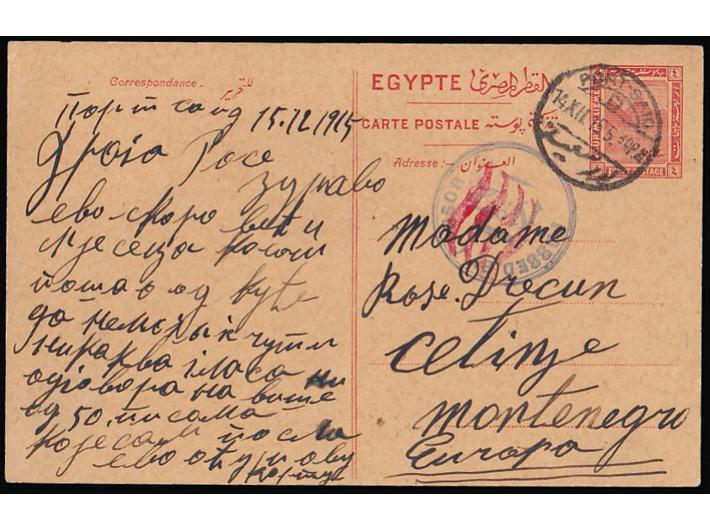 Correspondance.
EGYPTE القطر المصرى
CARTE POSTALE تذكرة پوسته
Adresse:- العنوان
PORT SAID
14 XII 15 5.30PM
PASSED CENSOR
Порт саид 15.12.1915
Драга Росе
здраво
ево скоро већ и
мјесеца
пошао од куће
да немогу чути
никаква гласа ни
одговора на више
од 50. писама
које сам посла
ево ову
карту
Madame
Rose. Drecun
Cetinje
montenegro
Europa